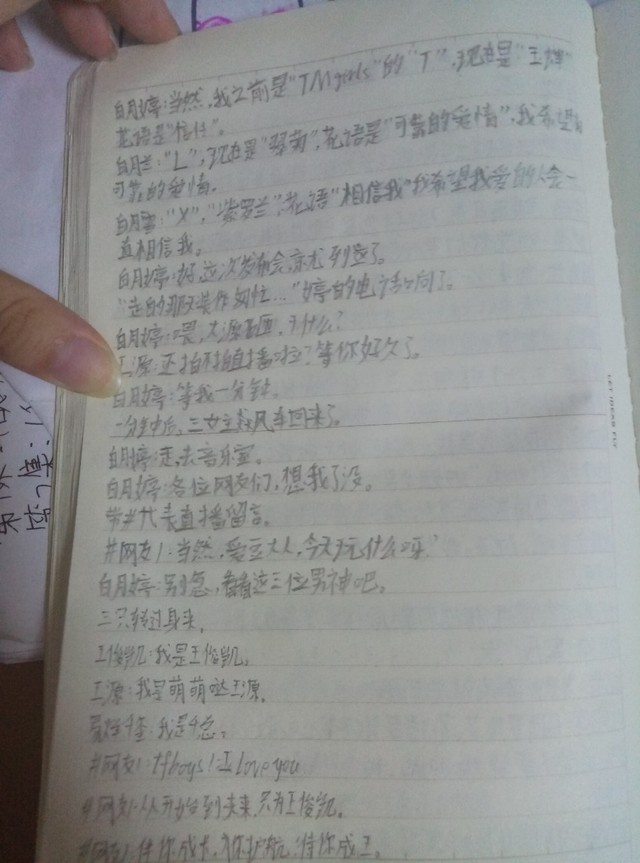 白月婷:当然,我之前是"TMgirls"的"T",现在是
花语是"信任"。
白月兰:"L",现在是"翠菊",花语是"可靠的爱情",我希望有
可靠的爱情。
白月雪:"X","紫罗兰",花语"相信我"我希望我爱的人会一
直相信我。
白月婷:好,这次发布会,就到这了。
"走的那么匆忙…"婷的电话响了。
白月婷:喂,大源源,干什么?
王源:还拍不拍直播啦?等你好久了。
白月婷:等我一分钟。
一分钟后,三女主赶风车回来了。
白月婷:走,去音乐室。
白月婷:各位网友们,想我了没。
#代表直播留言。
#网友1:当然,爱豆大人,今天玩什么呀?
白月婷:别急,看看这三位男神吧。
三只转过身来。
王俊凯:我是王俊凯。
王源:我是萌萌哒王源。
易烊千玺:我是千玺。
#网友1:tfboys!I Love you
#网友1:从开始到未来,只为王俊凯。
#网友1:伴你成长,为你护航,待你成王。